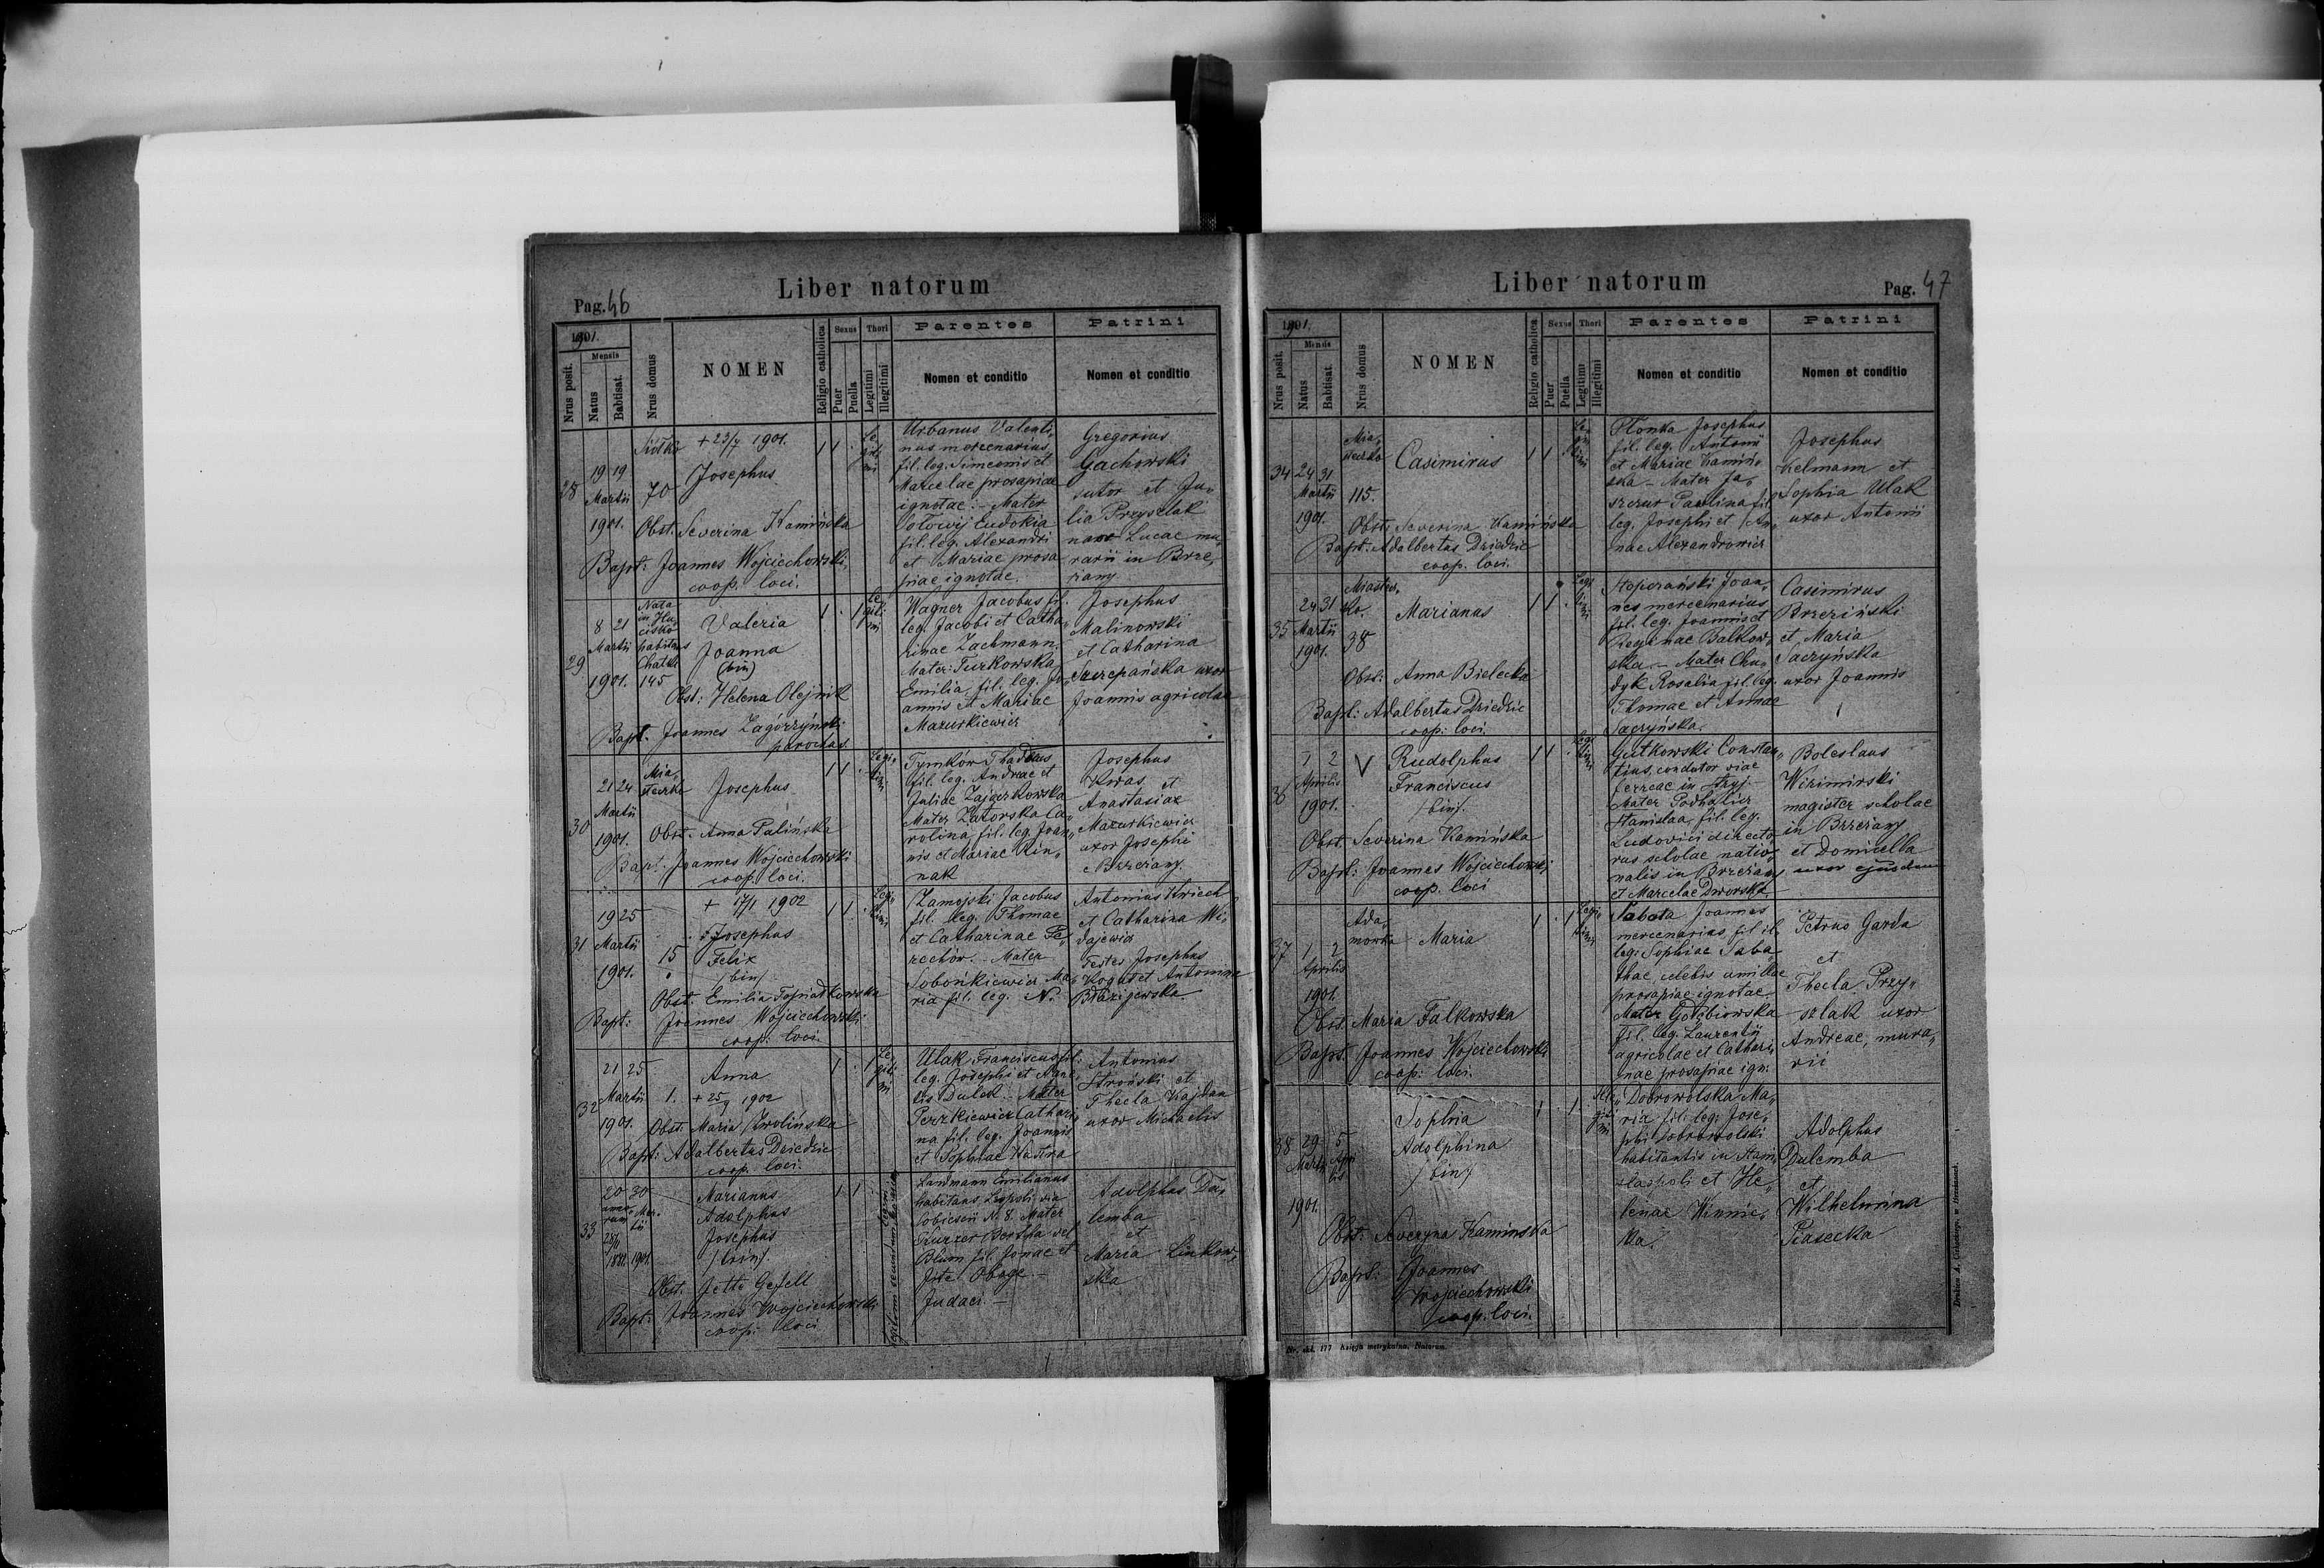 Liber natorum
Pag. 46
1901.
Nrus posit.
Mensis
Natus
Babtisat.
Nrus domus
NOMEN
Religio catholica
Sexus
Puer
Puella
Thori
Legitimi
Illegitimi
Parentes
Nomen et conditio
Patrini
Nomen et conditio
28
19 19
Martii
1901.
Siółko
70
+ 23/7 1901.
Josephus
1 1 .
Le
giti
mi
Obst. Severina Kamińska
Bapt: Joannes Wojciechowski,
coop. loci.
Urbanus Valenti,
nus mercenarius,
fil. leg. Simeonis et
Marcelae prosapiae
ignotae. - Mater
Sołowij Eudokia
fil. leg. Alexandri
et Mariae prosa
piae ignotae.
Gregorius
Gachowski
sutor et Ju,
lia Przyszlak
uxor Lucae mu
rarii in Brze,
żany.
29
8 21
Martii
1901.
Nata
habitans
145
Valeria
Joanna
(bin)
1 . 1
Le
giti
mi
Obst: Helena Olejnik
Bapt. Joannes Zagórzyński
parochus.
Wagner Jacobus fil.
leg. Jacobi et Catha,
rinae Zachmann.
Mater: Turkowska
Emilia, fil. leg. Jo,
annis et Mariae
Mazurkiewicz
Josephus
Malinowski
et Catharina
Szczepańska uxor
Joannis agricolae
30
21 24
Martii
1901.
Mia,
steczko
Josephus
1 1 .
Legi,
timi
Obst. Anna Palińska
Bapt. Joannes Wojciechowski
coop. loci.
Tymków Thadeus
fil. leg. Andreae et
Juliae Zajączkowska
Mater Zatorska Ca,
rolina, fil. leg. Joan,
nis et Mariae
nak
Josephus
Kwas et
Anastasiae
Mazurkiewicz
uxor Josephi
Brzeżany.
31
19 25
Martii
1901.
15
+ 17/1 1902
Josephus
Felix
/bin/
1 1 .
Legi,
timi
Obst. Emilia
Bapt: Joannes Wojciechowski
coop. loci.
Zamojski Jacobus
fil. leg. Thomae
et Catharinae Te,
rechów. Mater
Sobońkiewicz Ma,
ria fil. leg. N.
Antonius
et Catharina Wi,
dajewicz
Testes Josephus
Kogut et Antonina
32
21 25
Martii
1901.
1.
Anna
+ 25/9 1902
1 . 1
Le
giti
mi
Obst. Maria Zwolińska
Bapt: Adalbertus Dziedzic
coop. loci.
Ulak Franciscus fil.
leg. Josephi et Agne,
tis Dulek. Mater
Perzkiewicz Cathari,
na fil. leg. Joannis
et Sophiae
Antonius
Stroński et
Thecla Kajdan
uxor Michaelis
33
20 30
Mar.
tii
1881. 1901
Marianus
Adolphus
Josephus
/trin/
1 1 .
Obst. Jette Gefell
Bapt: Joannes Wojciechowski
coop. loci
Landmann Emilianus
habitans Leopoli via
Sobiescii N. 8. Mater
Kurzer Bertha vel
Blum fil. Jonae et
Jite
Judaei. -
Adolphus Du,
lemba
et
Maria Linkow,
ska
Liber natorum
Pag. 47
1901.
Nrus posit.
Mensis
Natus
Babtisat.
Nrus domus
NOMEN
Religio catholica
Sexus
Puer
Puella
Thori
Legitimi
Illegitimi
Parentes
Nomen et conditio
Patrini
Nomen et conditio
34
24 31
Martii
1901.
Mia,
steczko
115.
Casimirus
1 1 .
Le
gi
timi
Obst: Severina Kamińska
Bapt: Adalbertus Dziedzic
coop. loci.
Słonka Josephus
fil. leg. Antonii
et Mariae Kamiń,
ska - Mater Ja,
szczur Paulina fil.
leg. Josephi et An,
nae Alexandrowicz
Josephus
Kelmann et
Sophia Ulak
uxor Antonii
35
24 31
Martii
1901.
Miastecz,
ko.
38
Marianus
1 1 .
Legi
ti
mi
Obst: Anna Bielecka
Bapt: Adalbertus Dziedzic
coop. loci.
Joan,
nes mercenarius
fil. leg. Joannis et
Reginae Balkow,
ska. - Mater Chu,
dyk Rosalia fil. leg.
Thomae et Annae
Saczyńska.
Casimirus
Brzeziński
et Maria
Saczyńska
uxor Joannis
36
1 2
Aprilis
1901.
V
Rudolphus
Franciscus
/bin/.
1 1 .
Legi
timi
Obst. Severina Kamińska
Bapt: Joannes Wojciechowski,
coop. loci
Gutkowski Constan,
tius, conductor viae
ferreae in Stryj
Mater Podhalicz
Stanislaa, fil. leg.
Ludovici directo
rus scholae natio,
nalis in Brzeżany
et Marcelae Dworska.
Boleslaus
Wizimirski
magister scholae
in Brzeżany
et Domicella
uxor ejusdem
37
1 2
Aprilis
1901.
Ada,
mówka
Maria
1 . 1
Legi,
timi
Obst. Maria Falkowska
Bapt. Joannes Wojciechowski
coop. loci.
Sabata Joannes
mercenarius, fil. il.
leg. Sophiae Saba
thae, celebis ancillae
prosapiae ignotae
Mater Gołębiowska
fil. leg. Laurentii
agricolae et Cathari,
nae prosapiae ign.
Petrus Garda
et
Thecla Przy,
szlak uxor
Andreae, mura,
rii
38
29 5
Martii Apri
lis
1901.
Sophia
Adolphina
/bin/
1 . 1
Ille,
giti
mi
Obst: Severyna Kamińska
Bapt: Joannes
Wojciechowski
coop. loci.
Dobrowolska Ma,
ria fil. leg. Jose,
phi Dobrowolski
habitantis in Stani,
slaopoli et He,
lenae Winnic,
ka.
Adolphus
Dulemba
et
Wilhelmina
Piasecka
Nr. skł. 177 Księga metrykalna. Natorum.